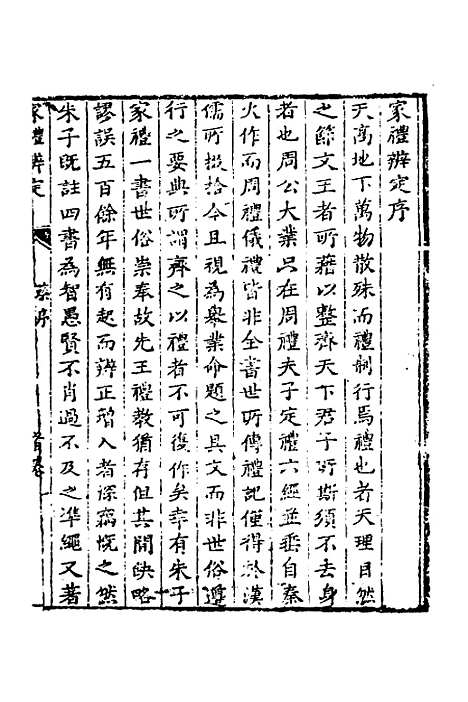 家禮辨定序
天高地下萬物散殊而禮制行焉禮也者天理自然
之節文王者所藉以整齊天下君子所斯須不去身
者也周公大業只在周禮夫子定禮六經並垂自秦
火作而周禮儀禮皆非全書世所傳禮記僅得於漢
儒所掇拾今且視為舉業命題之具文而非世俗遵
行之要典所謂齊之以禮者不可復作矣幸有朱子
家禮一書世俗崇奉故先王禮教猶存但其間缺略
謬誤五百餘年無有起而辨正增入者深竊慨之然
朱子既註四書為智愚賢不肖過不及之準繩又著
家禮辨定